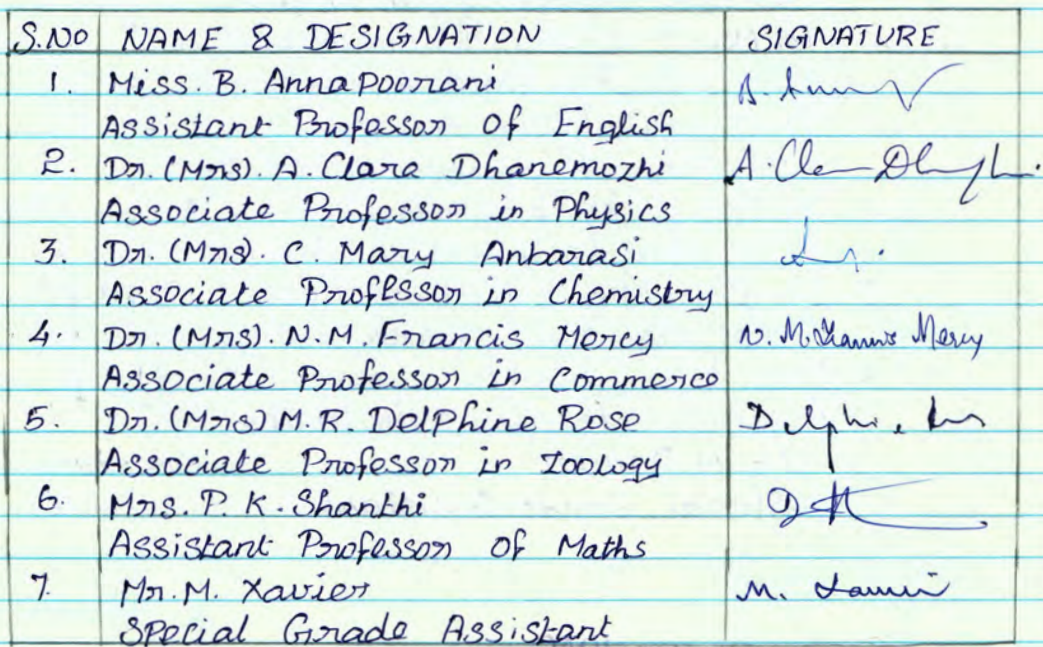 S.NO NAME & DESIGNATION SIGNATURE
1. Miss. B. Annapoorani
Assistant Professor of English
2. Dr. (Mrs). A. Clara Dhanemozhi A. Cla
Associate Professor in Physics
3. Dr. (Mrs). C. Mary Anbarasi
Associate Professor in Chemistry
4. Dr. (Mrs). N.M. Francis Mercy N. M. Francis Mercy
Associate Professor in Commerce
5. Dr. (Mrs) M.R. Delphine Rose
Associate Professor in Zoology
6. Mrs. P. K. Shanthi
Assistant Professor of Maths
7. Mr. M. Xavier M. Xavier
Special Grade Assistant